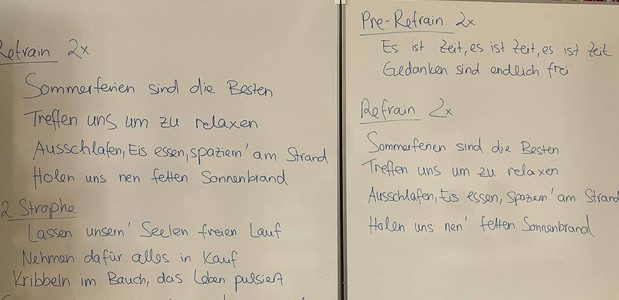 Refrain 2x
Sommerferien sind die Besten
Treffen uns um zu relaxen
Ausschlafen, Eis essen, spaziern' am Strand
Holen uns nen fetten Sonnenbrand
2. Strophe
Lassen unsern' Seelen freien Lauf
Nehmen dafür alles in Kauf
Kribbeln im Bauch, das Leben pulsiert
Pre-Refrain 2x
Es ist Zeit, es ist Zeit, es ist Zeit
Gedanken sind endlich frei
Refrain 2x
Sommerferien sind die Besten
Treffen uns um zu relaxen
Ausschlafen, Eis essen, spaziern' am Strand
Holen uns nen' fetten Sonnenbrand